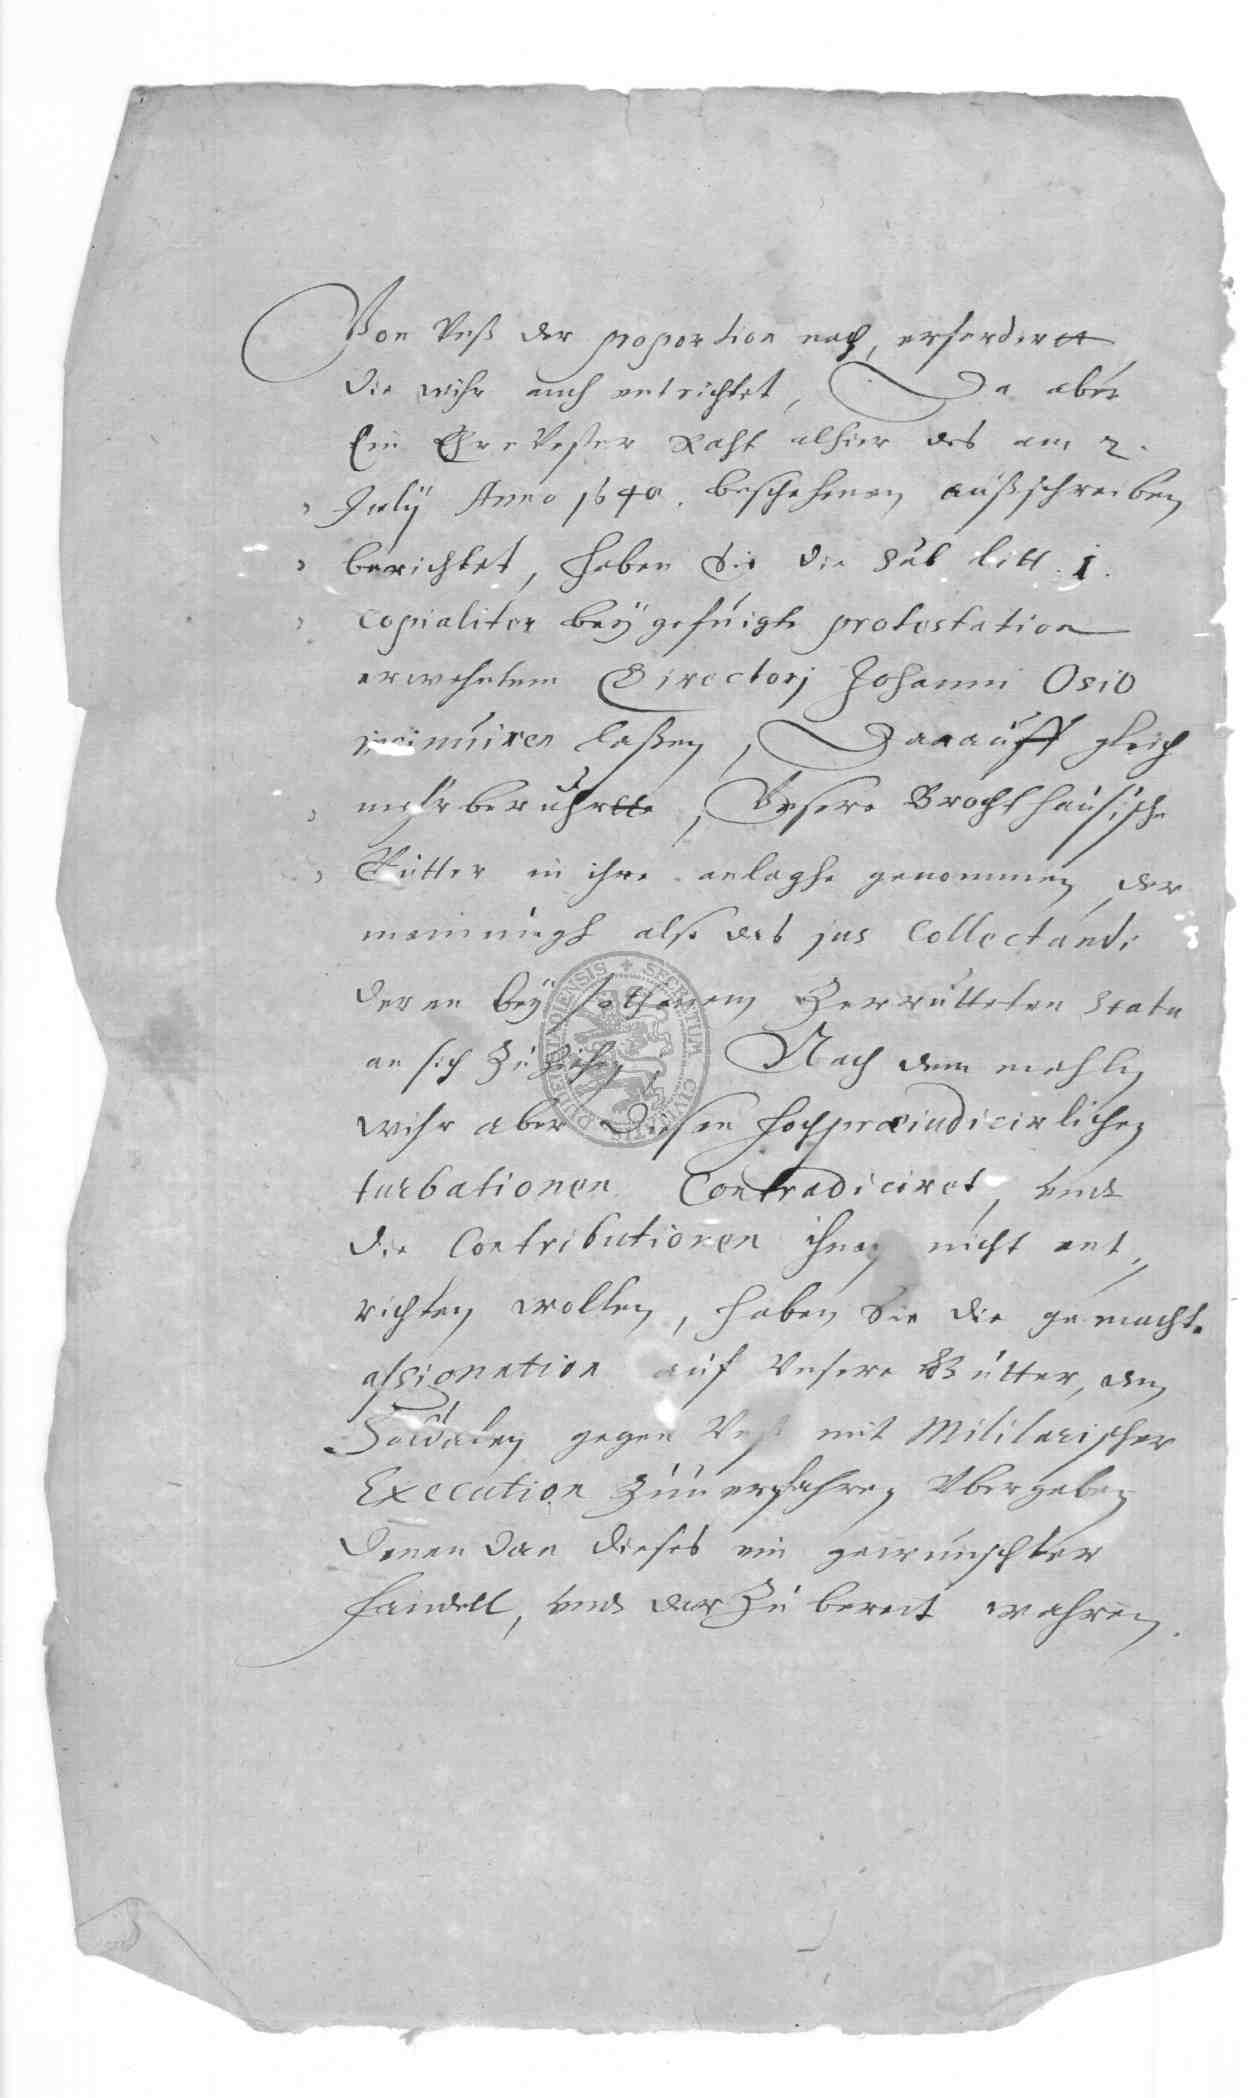 Von Vnß der proportion nach, erfordertt
die wihr auch entrichtet, Da aber
Ein EhrnVester Raht alhier des am 2.
July Anno 1640. beschehenen außschreiben
berichtet, haben Sie die Sub litt. i.
copialiter beygefuigte protestation
erwehntem Directorj Johanni Osio
insinuiren laßen, Darauff gleich
mehrberuhrtte, Vnsere Brochthausische
Gütter in ihre anlaghe genommen, der
meinungh also das jus Collectandi
deren bey sothanem Zerrütteten Statu
an sich zu Ziehen, Nach dem mahln
wihr aber diesen hochpraeiudicirlichen
turbationen Contradiciret, vnd
die Contributionen ihnen nicht ent,,
richten wollen, haben Sie die gemachte
assignation auf Vnsere Gütter, den
Soldaten gegen Vnß mit Militarischer
Execution Zuuerfahren Vbergeben
denen dan dieses ein gewunschter
handell, vnd darZu bereit wahren.
SECRETUM CIVITATIS